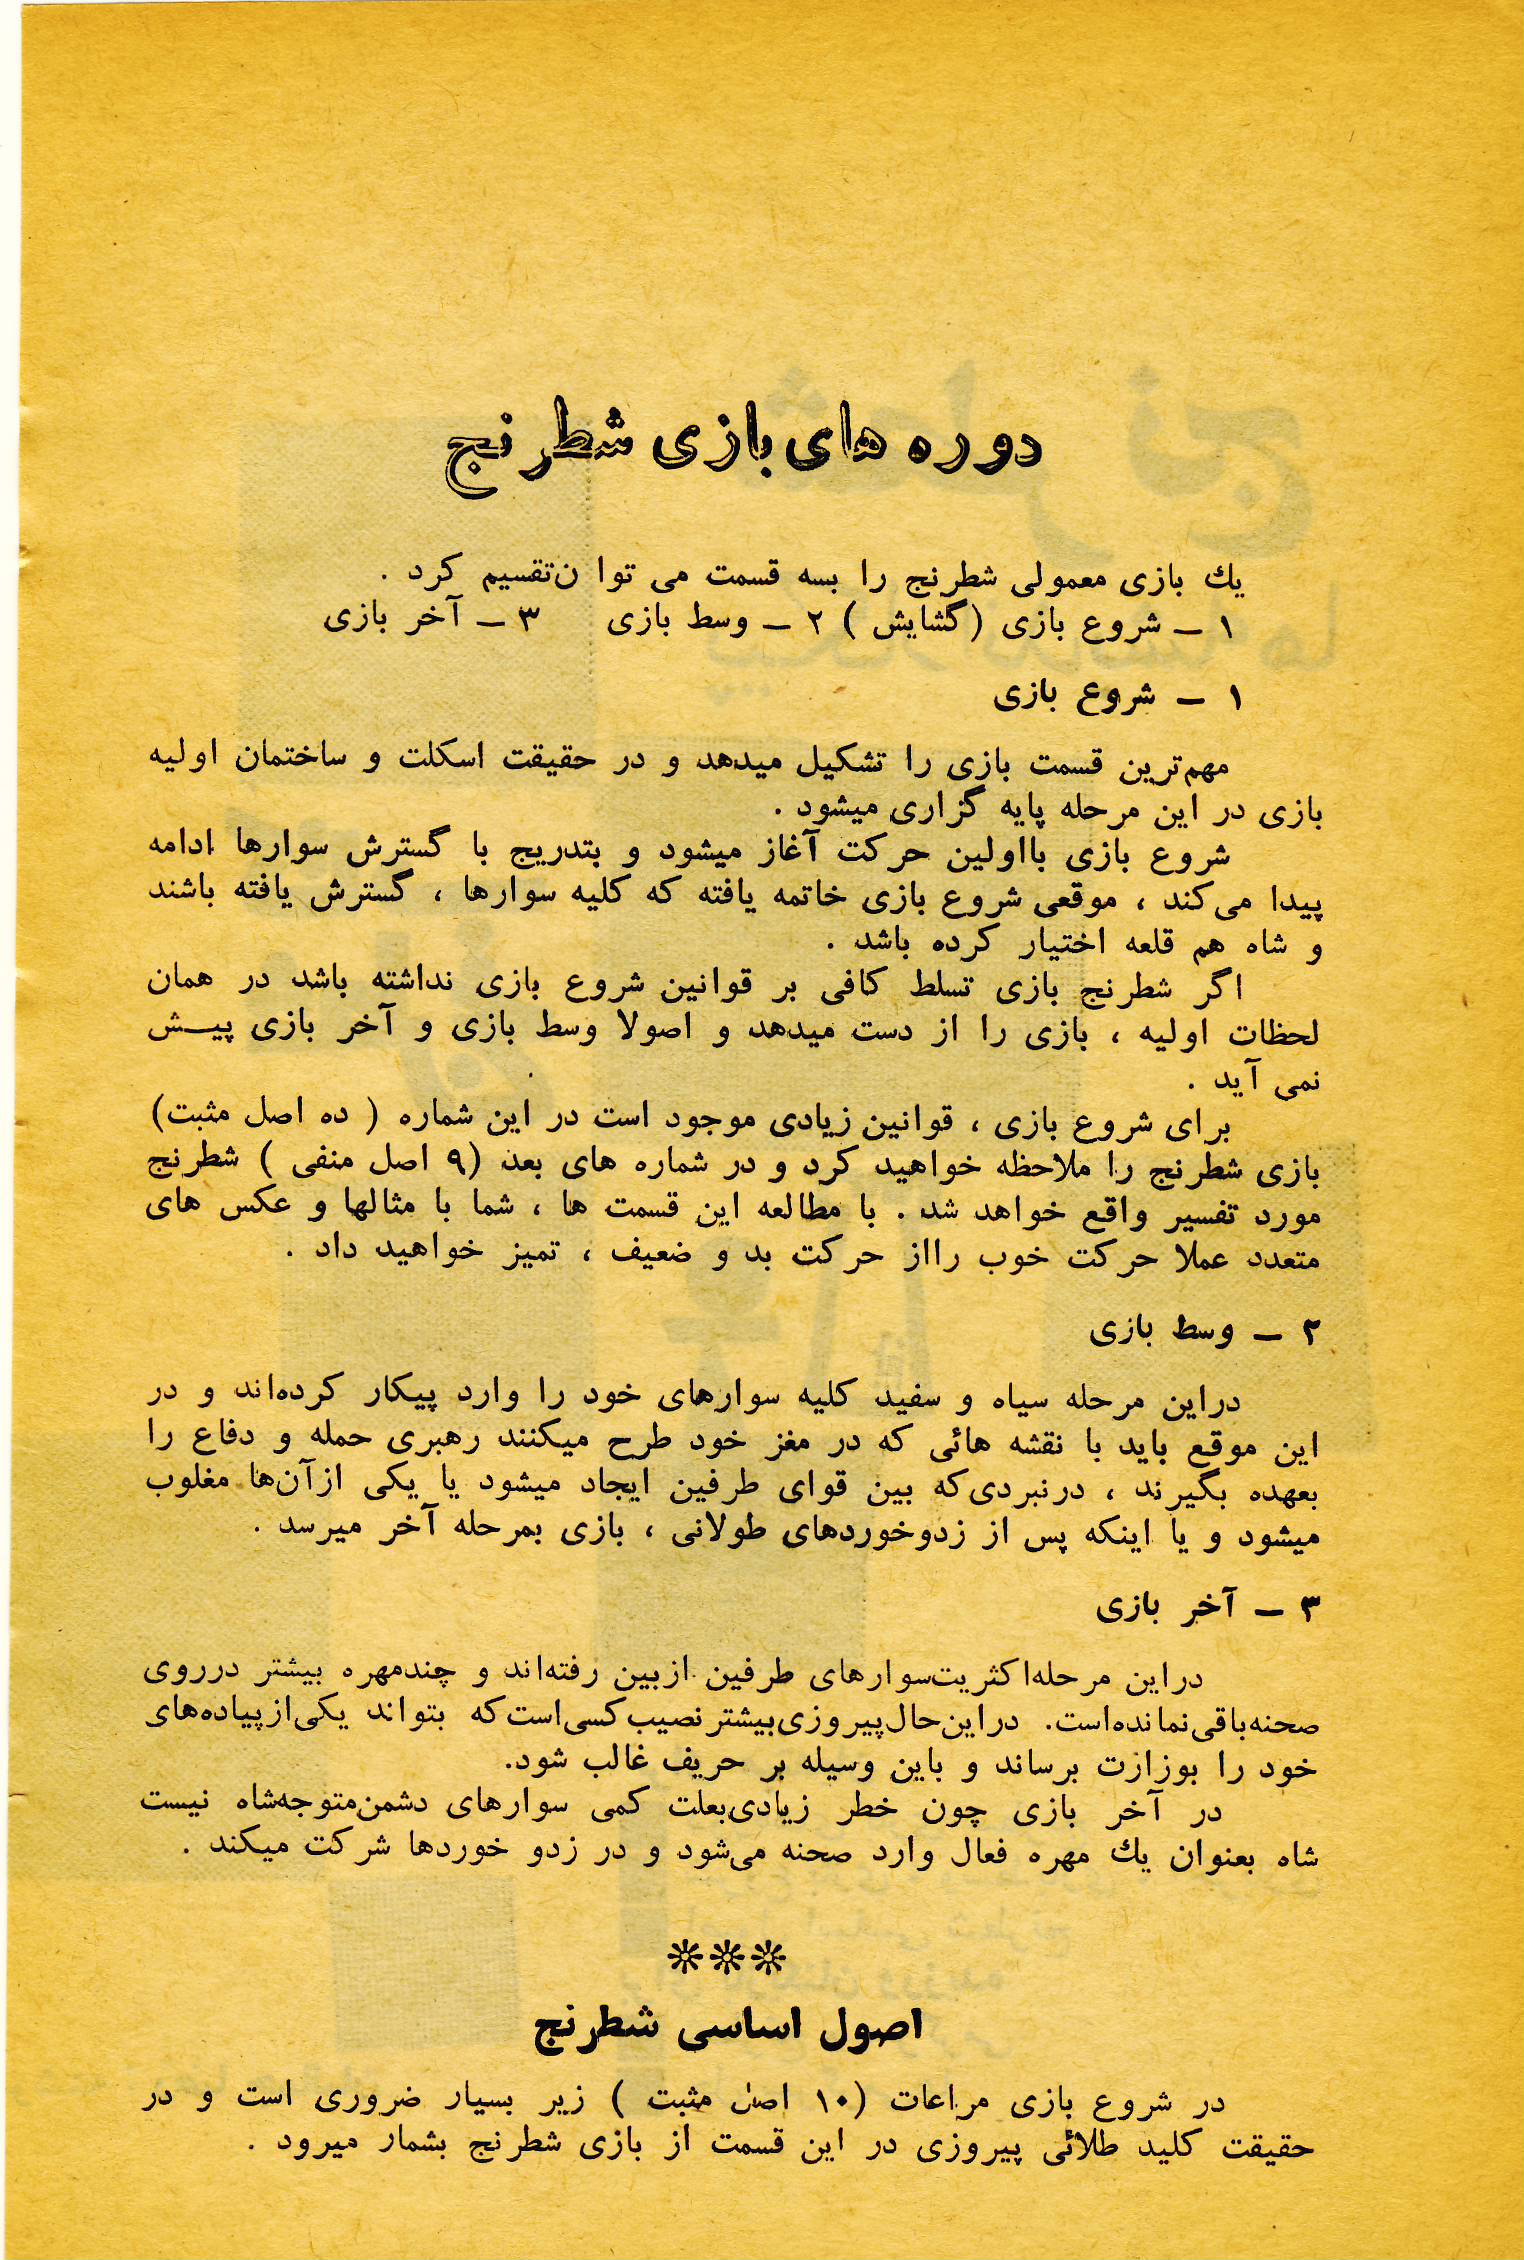 دوره های بازی شطرنج
یك بازی معمولی شطرنج را بسه قسمت می توا ن‌تقسیم کرد .
۱ ــ شروع بازی (گشایش ) ۲ ــ وسط بازی ۳ ــ آخر بازی
۱ ــ شروع بازی
مهم‌ترین قسمت بازی را تشکیل میدهد و در حقیقت اسکلت و ساختمان اولیه
بازی در این مرحله پایه گزاری میشود .
شروع بازی بااولین حرکت آغاز میشود و بتدریج با گسترش سوارها ادامه
پیدا می‌کند ، موقعی شروع بازی خاتمه یافته که کلیه سوارها ، گسترش یافته باشند
و شاه هم قلعه اختیار کرده باشد .
اگر شطرنج بازی تسلط کافی بر قوانین شروع بازی نداشته باشد در همان
لحظات اولیه ، بازی را از دست میدهد و اصولا وسط بازی و آخر بازی پیــش
نمی آید .
برای شروع بازی ، قوانین زیادی موجود است در این شماره ( ده اصل مثبت)
بازی شطرنج را ملاحظه خواهید کرد و در شماره های بعد (۹ اصل منفی ) شطرنج
مورد تفسیر واقع خواهد شد . با مطالعه این قسمت ها ، شما با مثالها و عکس های
متعدد عملا حرکت خوب رااز حرکت بد و ضعیف ، تمیز خواهید داد .
۲ ــ وسط بازی
دراین مرحله سیاه و سفید کلیه سوارهای خود را وارد پیکار کرده‌اند و در
این موقع باید با نقشه هائی که در مغز خود طرح میکنند رهبری حمله و دفاع را
بعهده بگیرند ، درنبردی‌که بین قوای طرفین ایجاد میشود یا یکی ازآن‌ها مغلوب
میشود و یا اینکه پس از زدوخوردهای طولانی ، بازی بمرحله آخر میرسد .
۳ ــ آخر بازی
دراین مرحله‌اکثریت‌سوارهای طرفین ازبین رفته‌اند و چندمهره بیشتر درروی
صحنه‌باقی‌نمانده‌است. دراین‌حال‌پیروزی‌بیشترنصیب‌کسی‌است‌که بتواند یکی‌ازپیاده‌های
خود را بوزارت برساند و باین وسیله بر حریف غالب شود.
در آخر بازی چون خطر زیادی‌بعلت کمی سوارهای دشمن‌متوجه‌شاه نیست
شاه بعنوان یك مهره فعال وارد صحنه می‌شود و در زدو خوردها شرکت میکند .
❊❊❊
اصول اساسی شطرنج
در شروع بازی مراعات (۱۰ اصل مثبت ) زیر بسیار ضروری است و در
حقیقت کلید طلائی پیروزی در این قسمت از بازی شطرنج بشمار میرود .